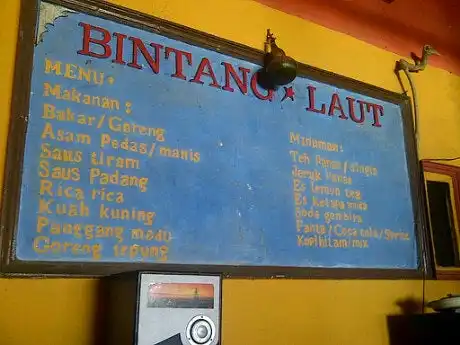 BINTANG ★ LAUT
MENU :
Makanan :
Bakar/Goreng
Asam Pedas/manis
Saus tiram
Saus Padang
Rica rica
Kuah kuning
Panggang madu
Goreng tepung
Minuman :
Teh Panas/dingin
Jeruk Panas
Es lemon tea
Es kelapa muda
Soda gembira
Fanta/Coca cola/Sprite
Kopi hitam/mix